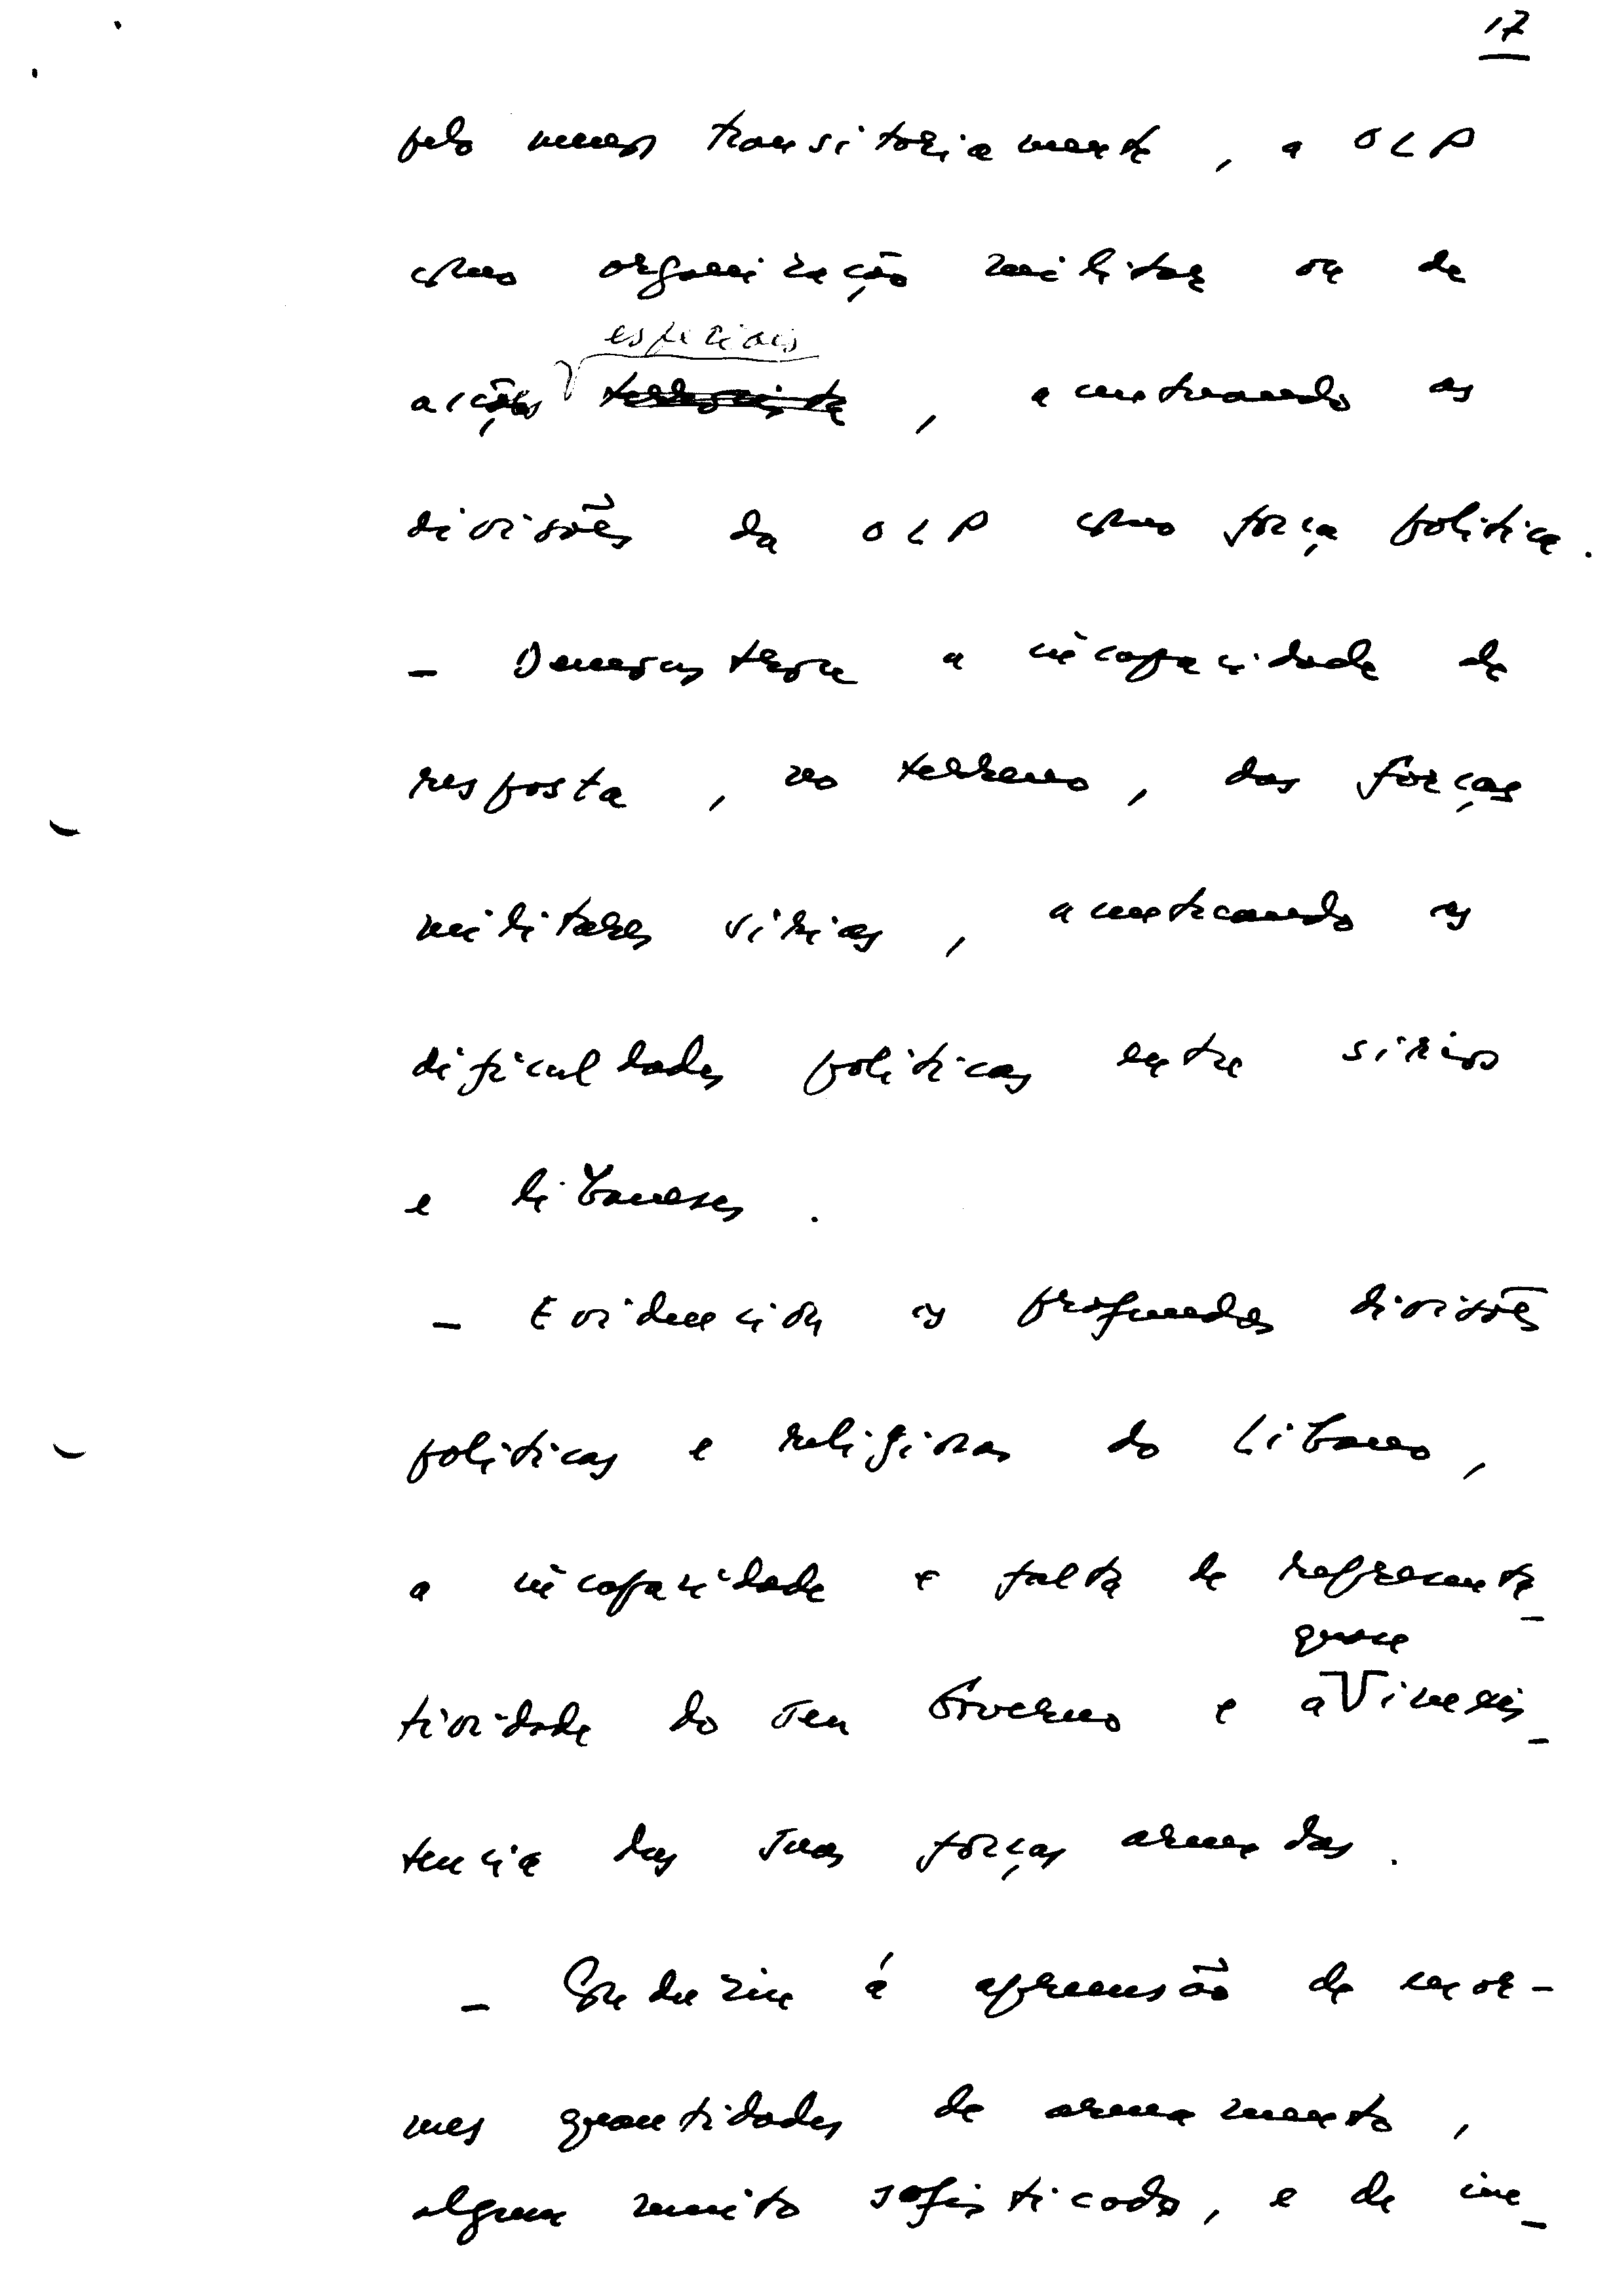 17
pelo menos transitoriamente, a OLP
como organização militar ou de
especiais
acções terrorista, acentuando as
divisões da OLP como força politica.
- Demonstrou a incapacidade de
resposta, no terreno, das forças
militares sirias, acentuando as
dificuldades politicas entre sirios
e libaneses.
- Evidenciou as profundas divisões
politicas e religiosas do Libano,
a incapacidade e falta de representa-
quase
tividade do seu Governo e a inexis-
tencia das suas forças armadas.
- Conduziu á apreensão de enor-
mes quantidades de armamento,
algum muito sofisticado, e de ine-